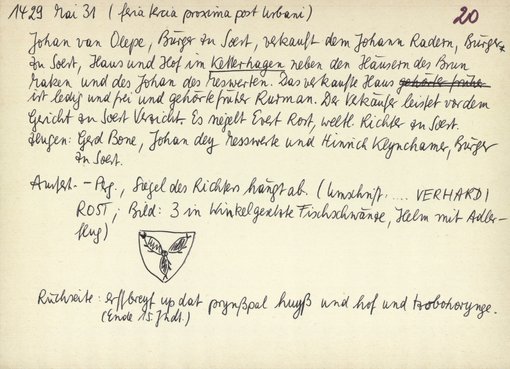 1429 Mai 31 (feria tercia proxima post Urbani)
20
Johan van Olepe, Bürger zu Soest, verkauft dem Johann Radern, Bürger
zu Soest, Haus und Hof im Ketterhagen neben den Häusern des Brun
Maken und des Johan des Messwerten. Das verkaufte Haus gehörte früher
ist ledig und frei und gehörte früher Rurman. Der Verkäufer leistet vor dem
Gericht zu Soest Verzicht. Es siegelt Evert Rost, weltl. Richter zu Soest.
Zeugen: Gerd Bone, Johan dey Messwerte und Hinrich Kleynchamer, Bürger
zu Soest.
Ausf. - Pg., Siegel des Richters hängt ab. (Umschrift .... VERHARDI
ROST; Bild: 3 in Winkel gesetzte Fischschwänze, Helm mit Adler-
flug)
Rückseite: erffbreyf up dat prynßpal huyß und hof und
(Ende 15. Jhdt.)